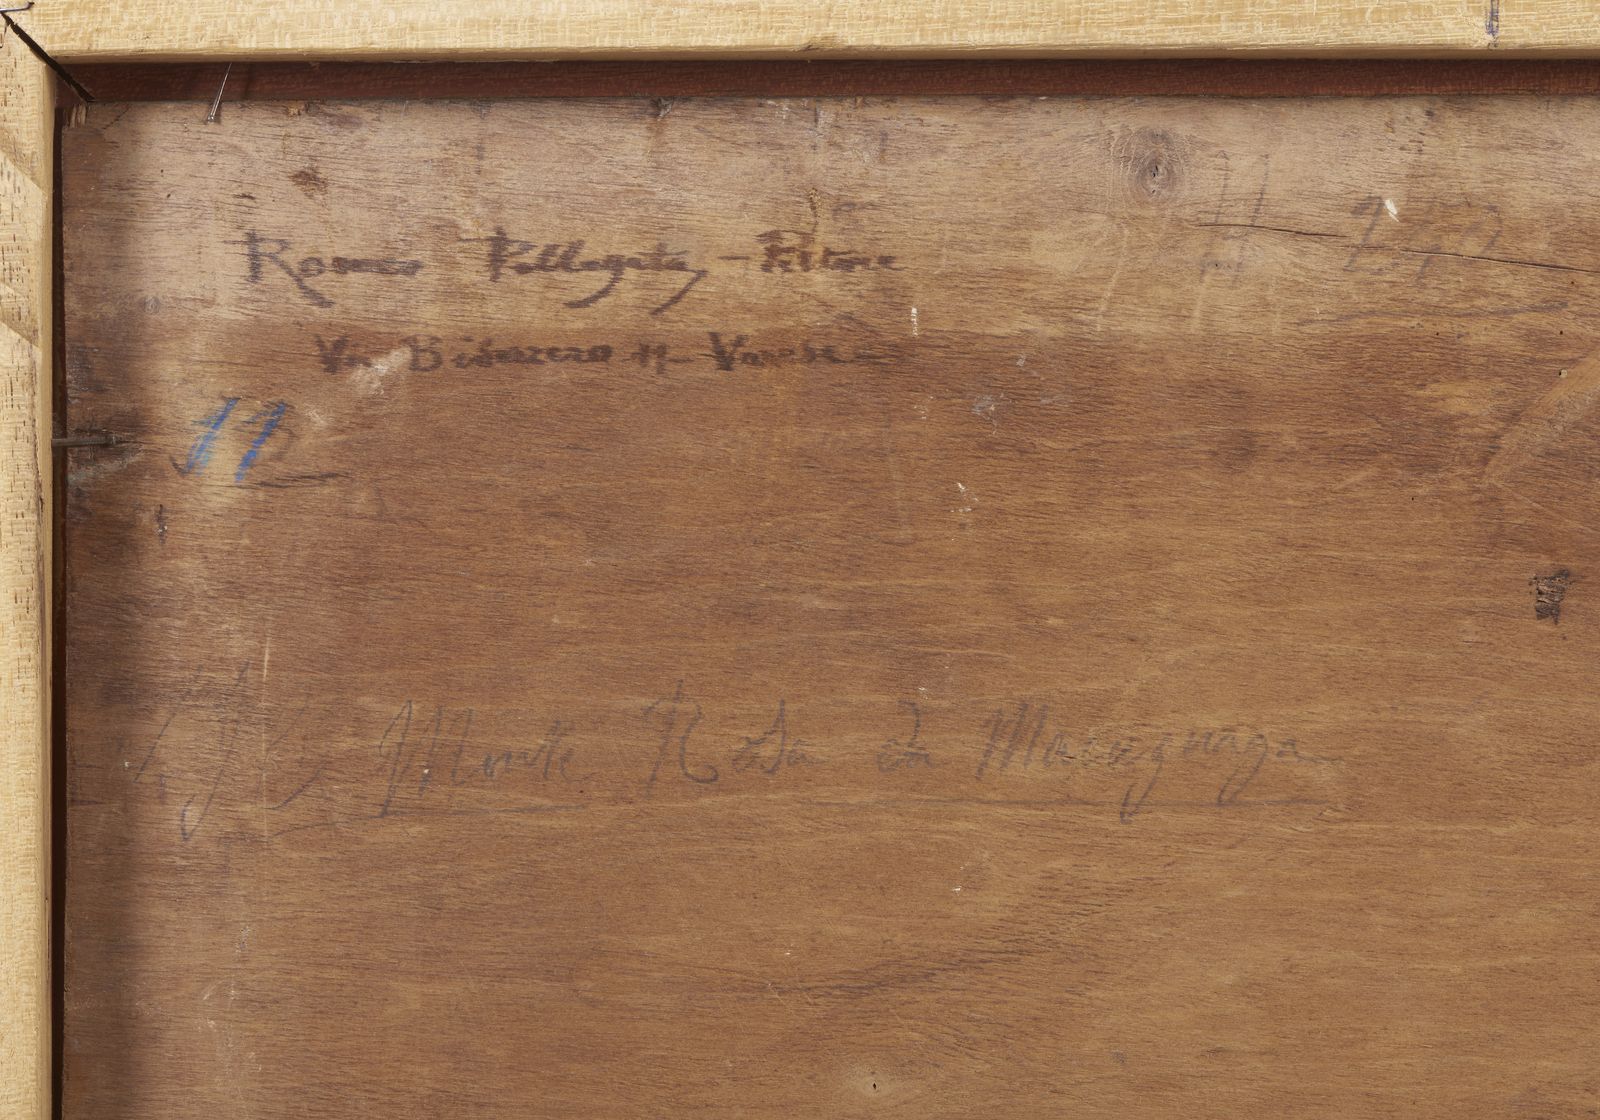 Romeo Pellegata - Pittore
Via Bidorzero 11 - Varese
H
11
Il Monte Rosa da Macugnaga